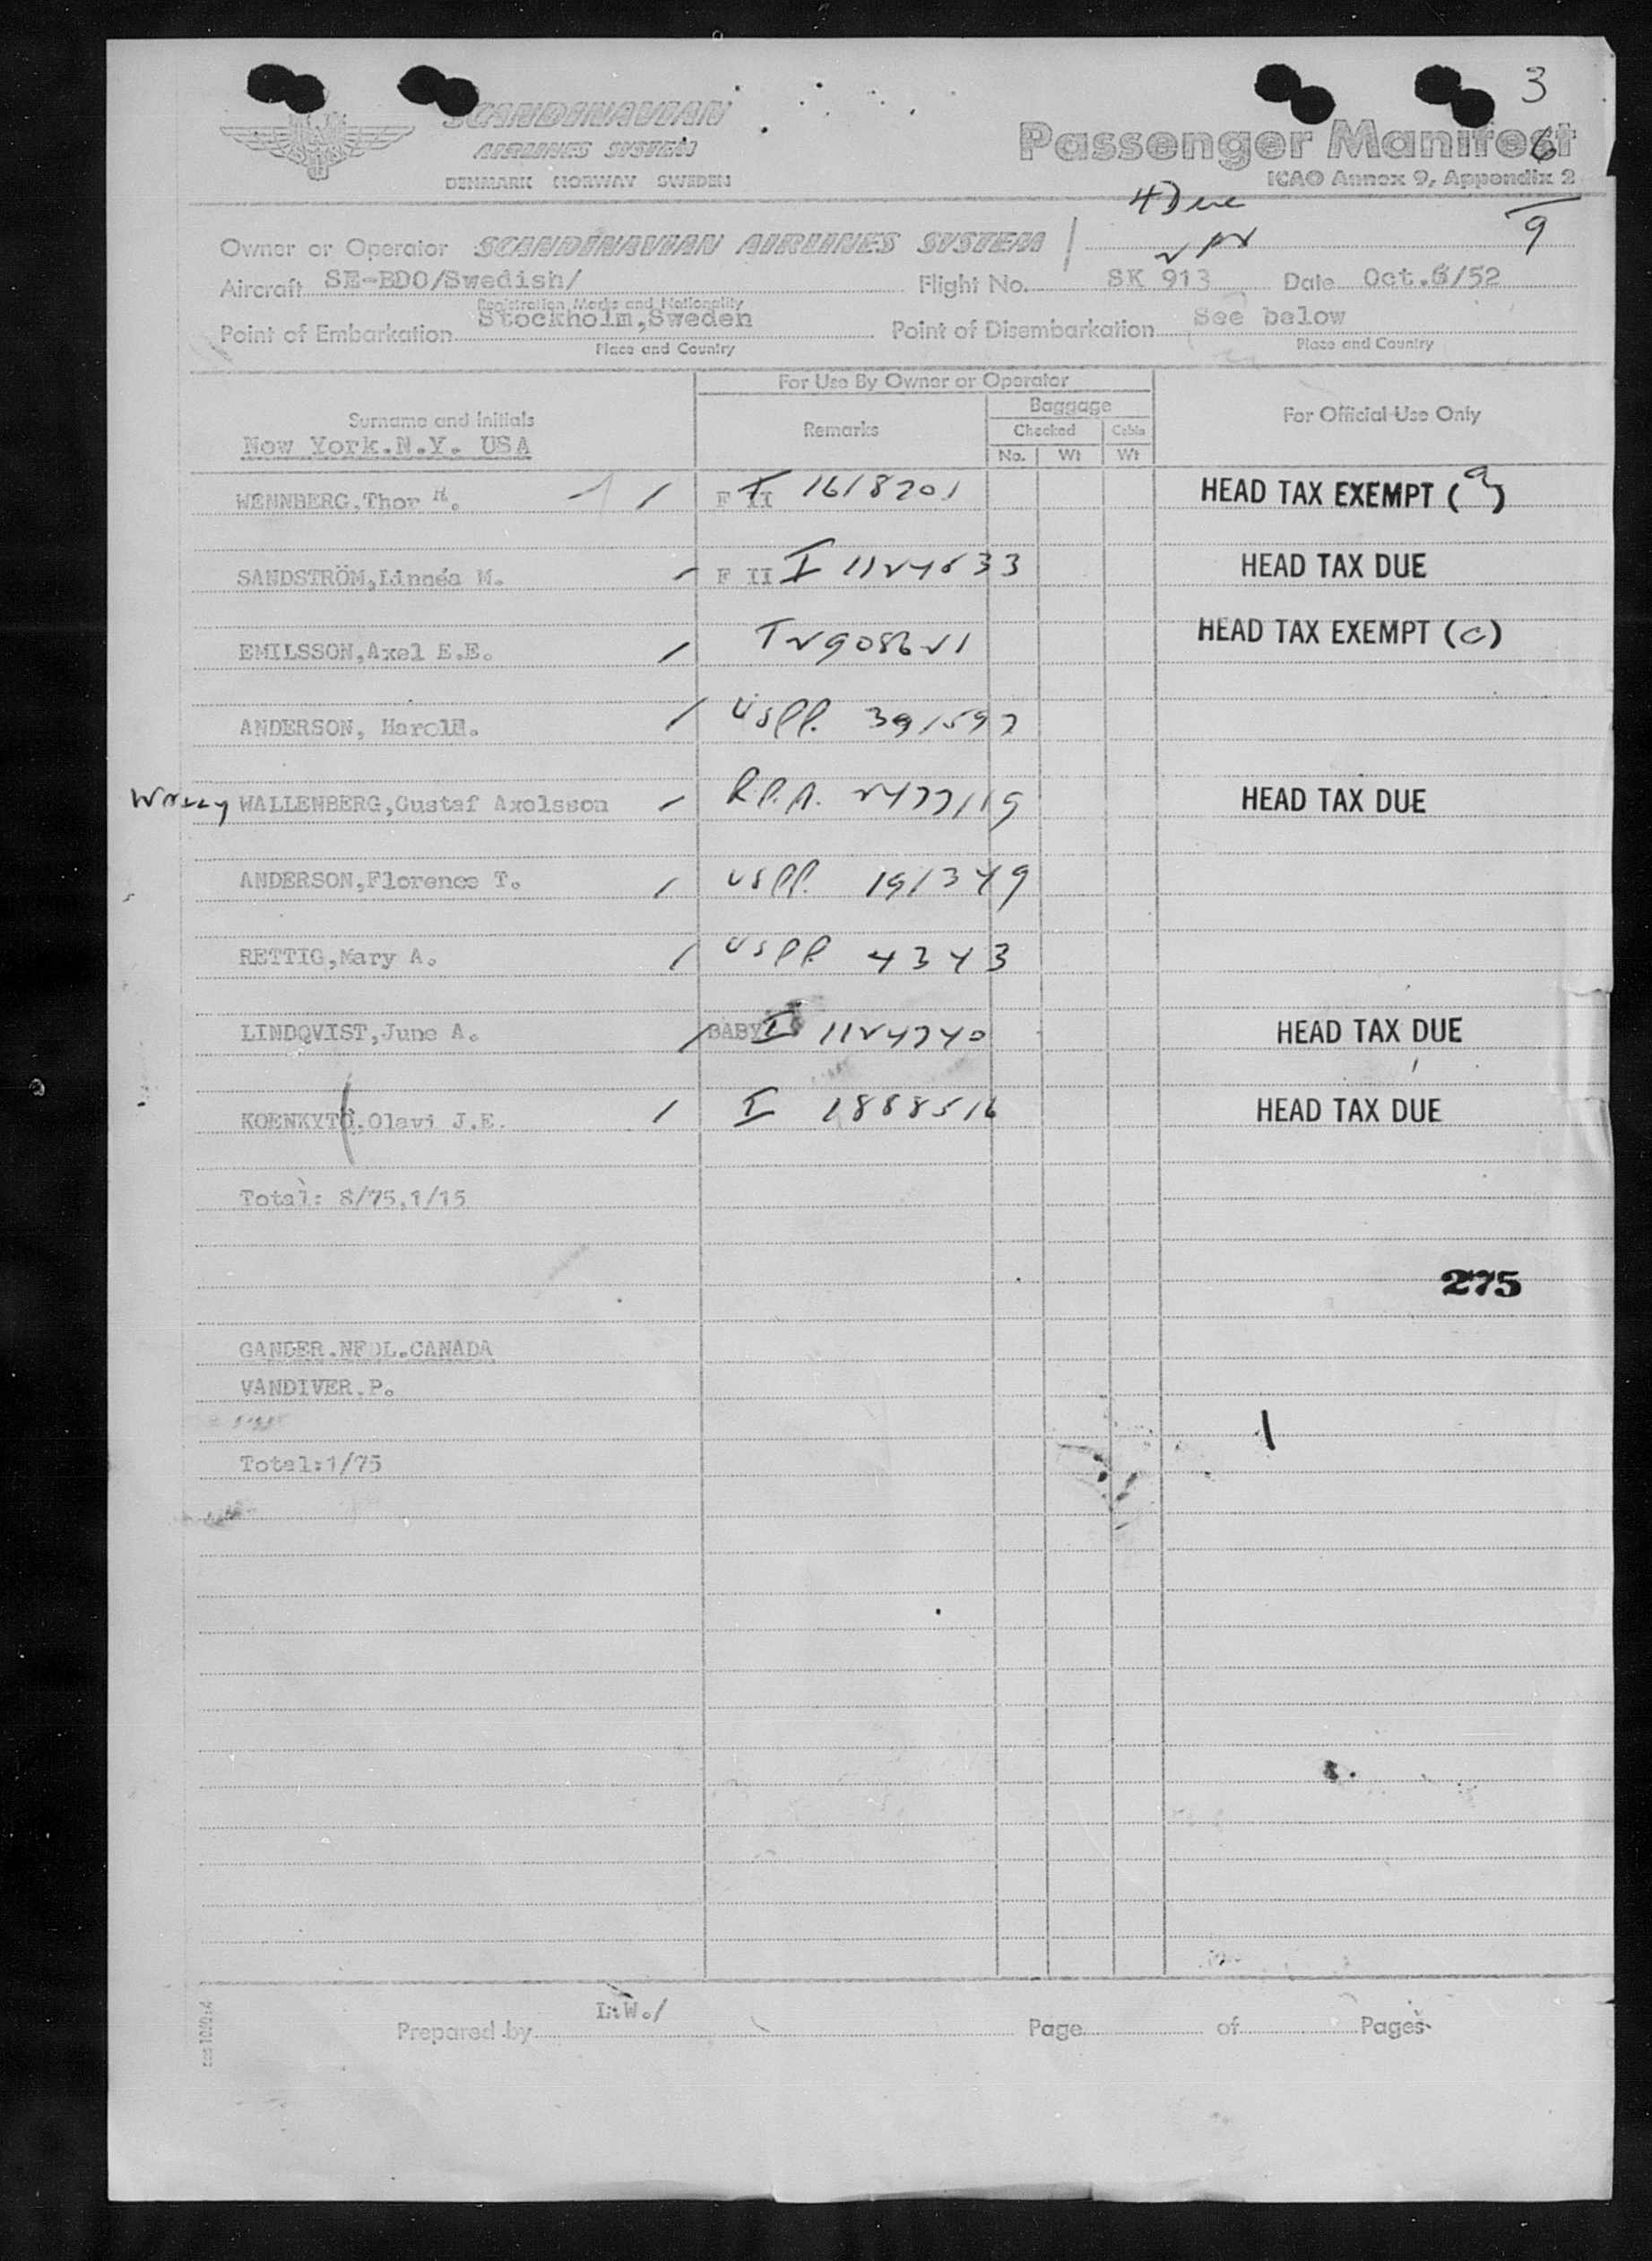 3
SCANDINAVIAN
AIRLINES SYSTEM
DENMARK NORWAY SWEDEN
Passenger Manifest
6
ICAO Annex 9, Appendix 2
4 Due
9
Owner or Operator SCANDINAVIAN AIRLINES SYSTEM
Aircraft SE-BDO/Swedish/ Flight No. SK 913 Date Oct.6/52
Registration Marks and Nationality
Point of Embarkation Stockholm,Sweden Point of Disembarkation See below
Place and Country Place and Country
For Use By Owner or Operator
Surname and Initials Remarks Baggage For Official Use Only
Checked Cabin
No. Wt Wt
New York.N.Y. USA
WENNBERG,Thor H. F II I 1618201 HEAD TAX EXEMPT (a)
SANDSTRÖM,Linnéa M. F II I 1124633 HEAD TAX DUE
EMILSSON,Axel E.E. I 2908621 HEAD TAX EXEMPT (c)
ANDERSON, Harold. USPP. 391597
WALLENBERG,Gustaf Axelsson R.P.A. 2477119 HEAD TAX DUE
ANDERSON,Florence T. USPP. 191349
RETTIG,Mary A. USPP 4343
LINDQVIST,June A. BABY I 1124740 HEAD TAX DUE
KOENKYTÖ.Olavi J.E. I 1888516 HEAD TAX DUE
Total: 8/75,1/15
275
GANDER.NFDL.CANADA
VANDIVER.P.
Total:1/75
Prepared by I.W./ Page of Pages